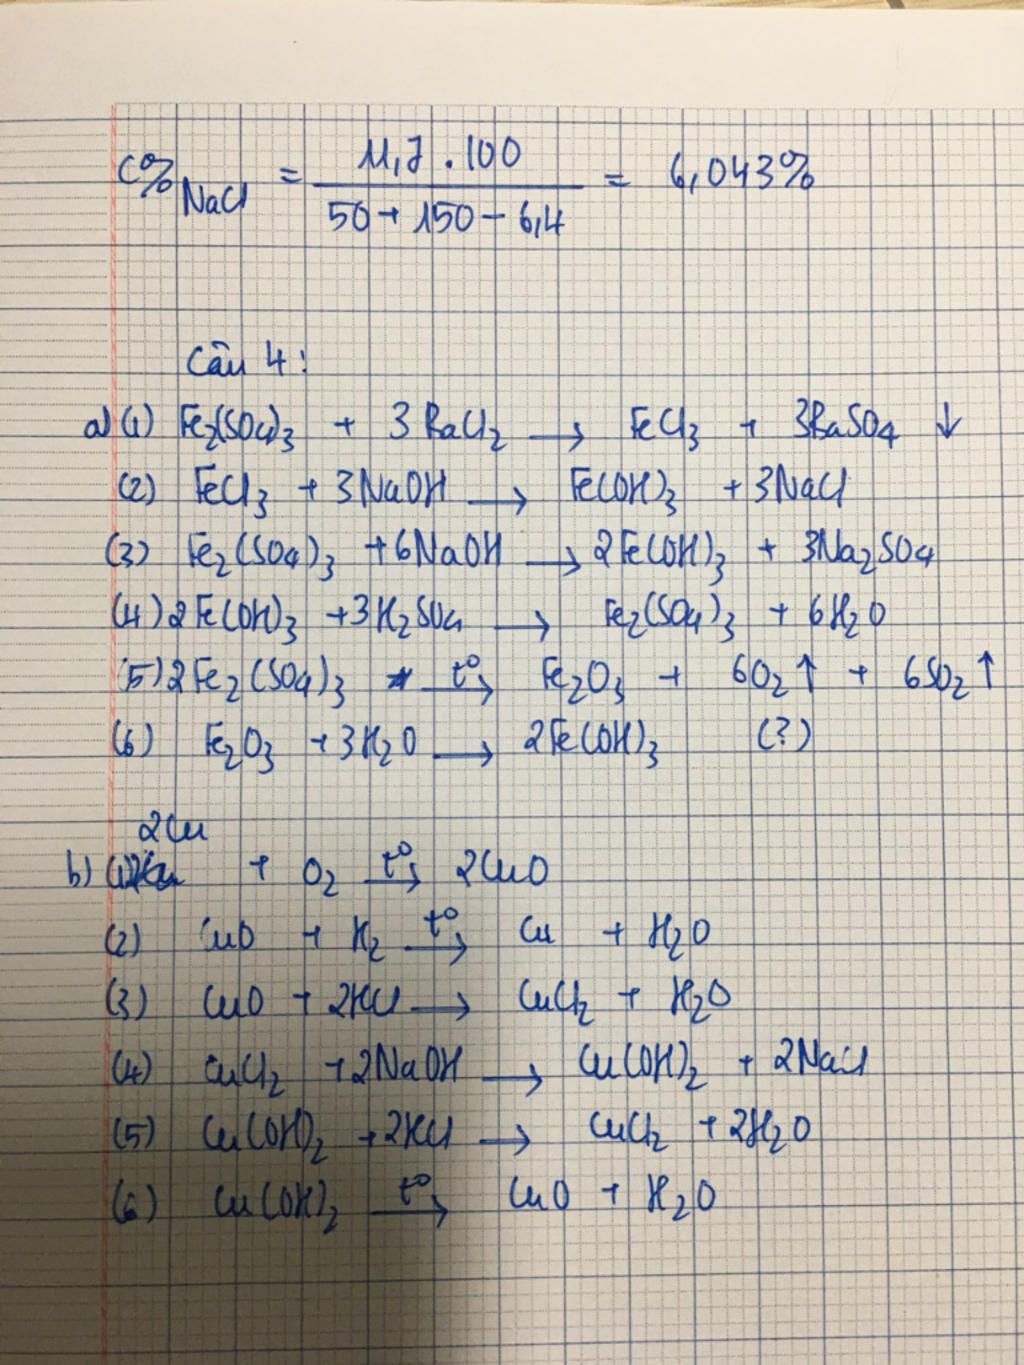 C%NaCl = 11,7 . 100 / 50 + 150 - 6,4 = 6,043%
Câu 4:
a) (1) Fe₂(SO₄)₃ + 3BaCl₂ → FeCl₃ + 3BaSO₄ ↓
(2) FeCl₃ + 3NaOH → Fe(OH)₃ + 3NaCl
(3) Fe₂(SO₄)₃ + 6NaOH → 2Fe(OH)₃ + 3Na₂SO₄
(4) 2Fe(OH)₃ + 3H₂SO₄ → Fe₂(SO₄)₃ + 6H₂O
(5) 2Fe₂(SO₄)₃ t° → Fe₂O₃ + 6O₂ ↑ + 6SO₂ ↑
(6) Fe₂O₃ + 3H₂O → 2Fe(OH)₃ (?)
b) (1) 2Cu + O₂ t° → 2CuO
(2) CuO + H₂ t° → Cu + H₂O
(3) CuO + 2HCl → CuCl₂ + H₂O
(4) CuCl₂ + 2NaOH → Cu(OH)₂ + 2NaCl
(5) Cu(OH)₂ + 2HCl → CuCl₂ + 2H₂O
(6) Cu(OH)₂ t° → CuO + H₂O